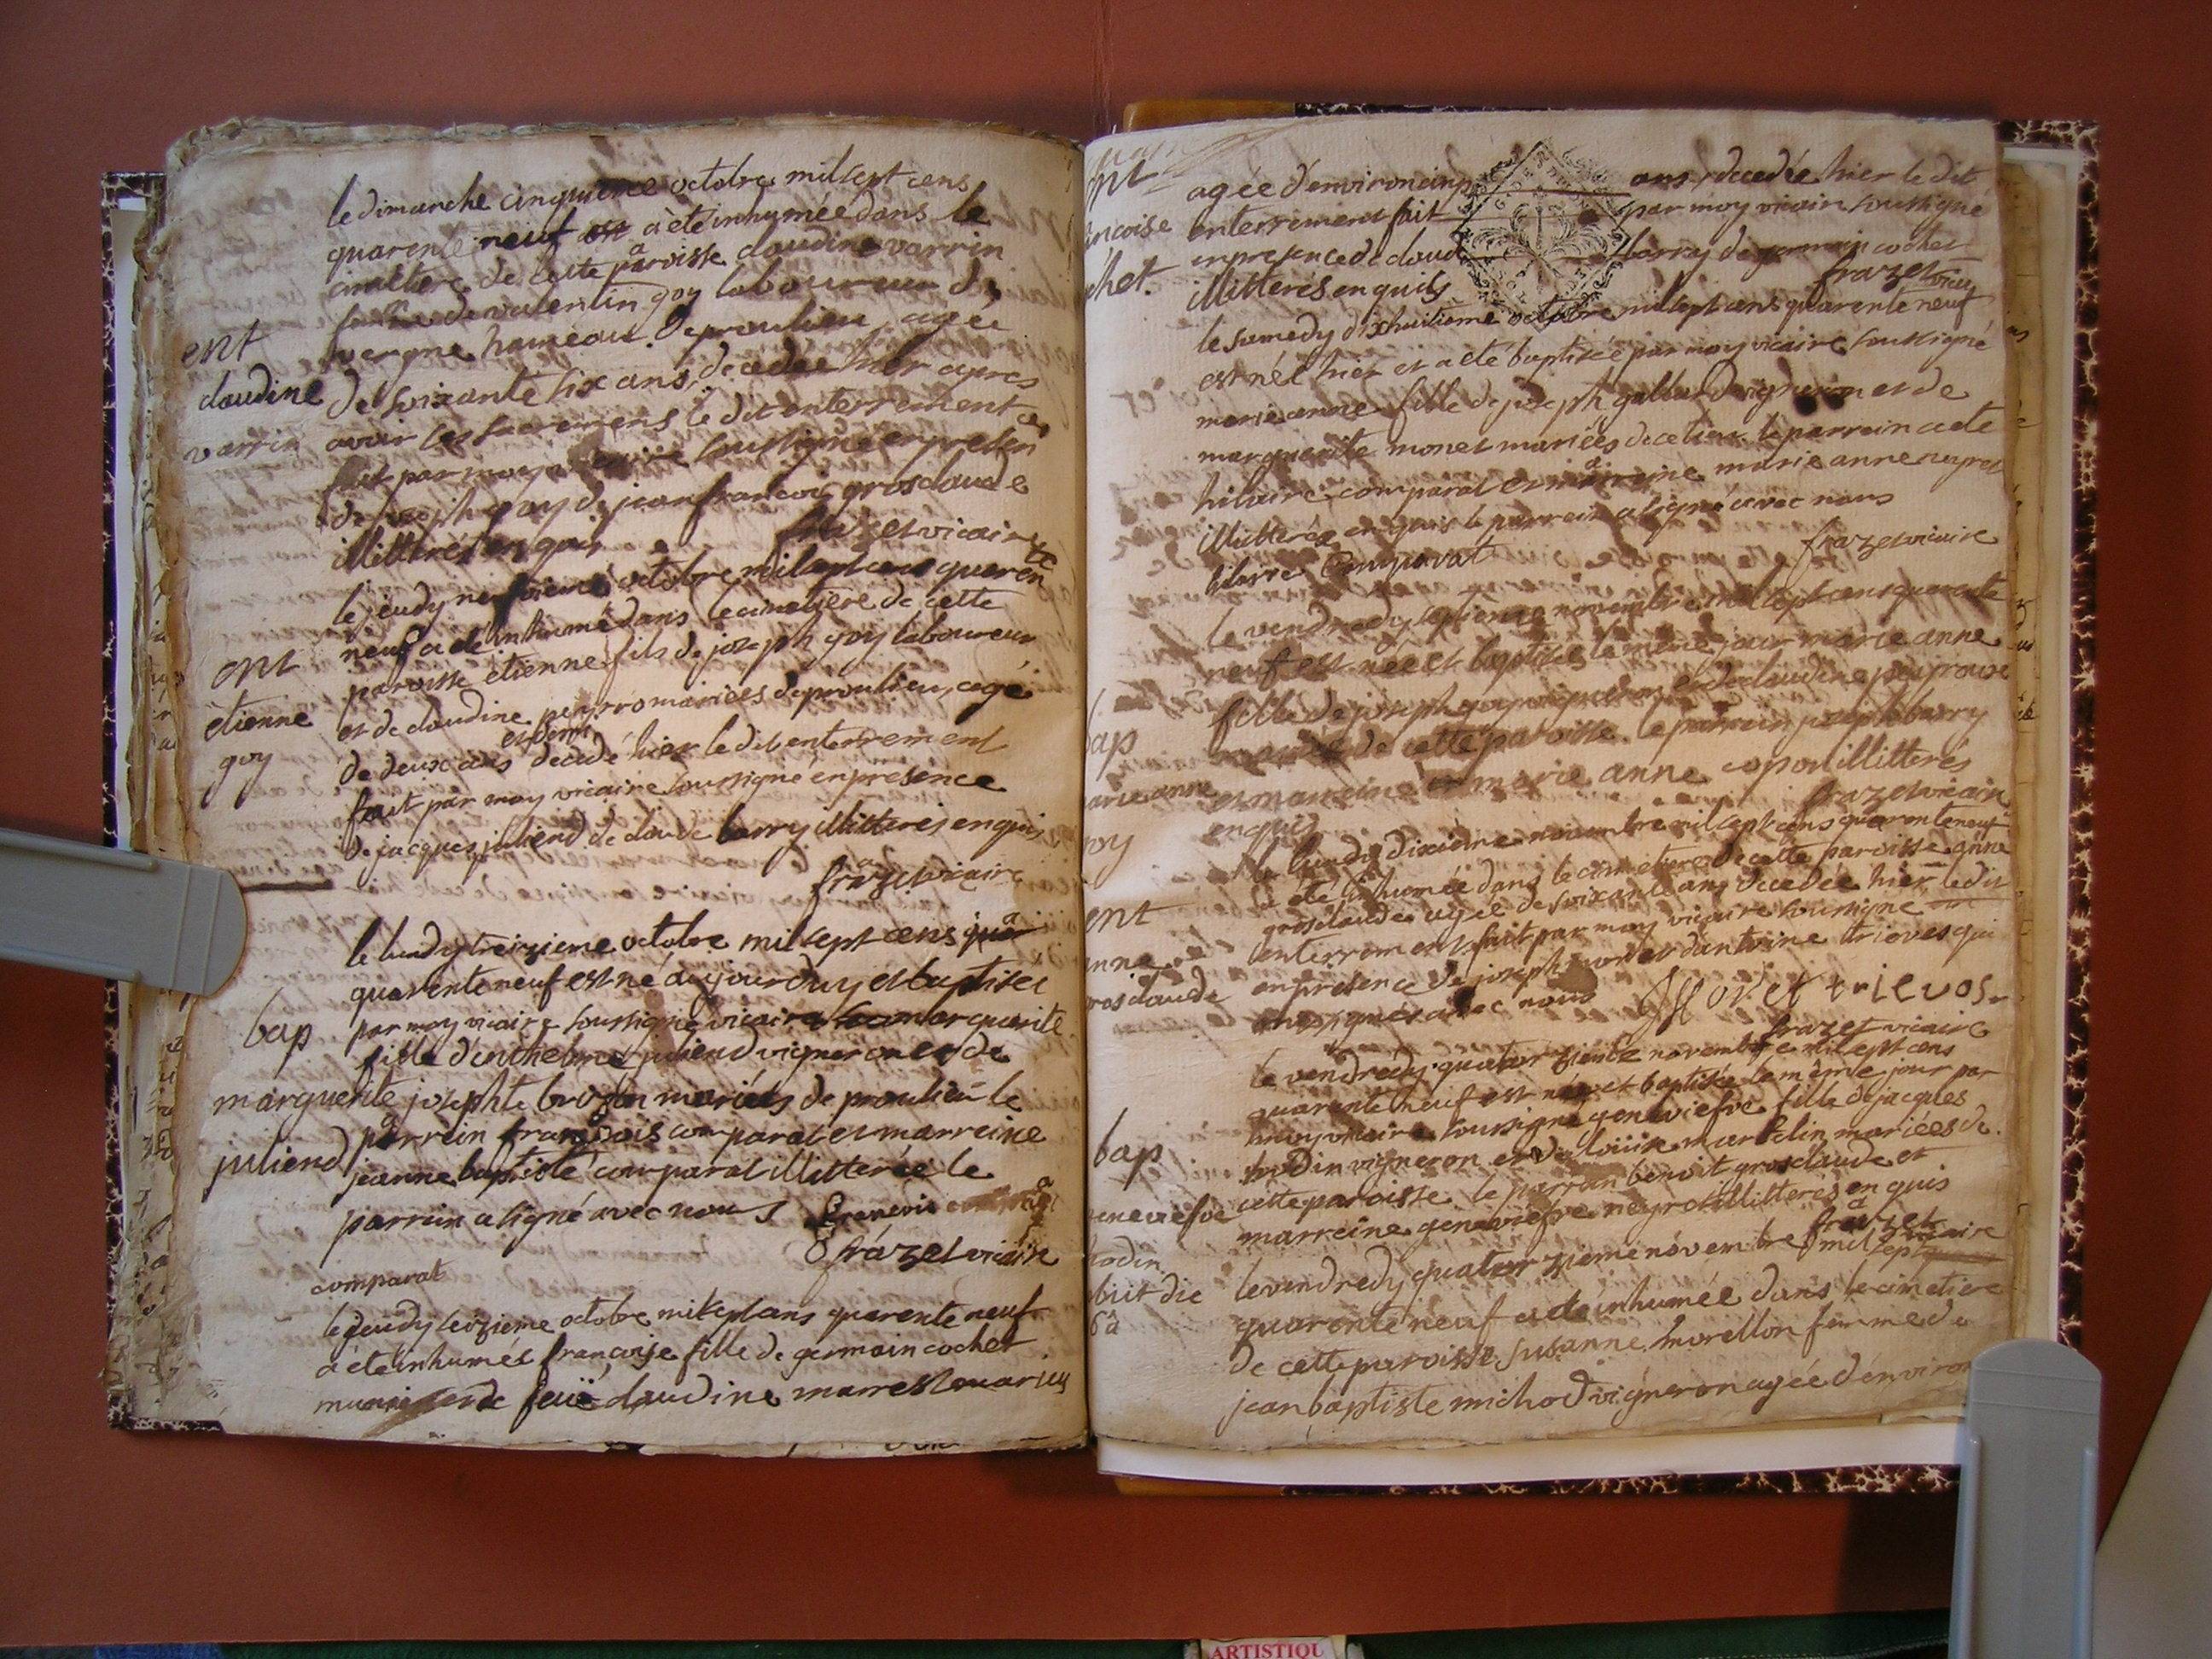 le dimanche cinquieme octobre mil sept cens
quarente neuf est a été inhumée dans le
cimetiere de cette paroisse claudine varrin
femme de valentin goy laboureur de
vergne hameau de proulieu agée
ent
claudine
varrin
de soixante six ans, decedée hier apres
avoir les sacremens le dit enterrement
fait par moy vicaire soussigné en presen
ce
de joseph goy de jean francois grosclaude
illitterés enquis frazet vicaire
le jeudy neufvieme octobre mil sept cens quaren
te
neuf a été inhumé dans le cimetiere de cette
paroisse etienne fils de joseph goy laboureur
ent
étienne
goy
et de claudine peyrro mariées de proulieu, agé
et demi
de deux ans decedé hier le dit enterrement
fait par moy vicaire soussigné en présence
de jacques juliend de claude barry illitterés enquis
frazet vicaire
le lundy treizieme octobre mil sept cens quar
quarente neuf est né aujourduy et baptisée
bap
par moy vicaire soussigné vicaire marguerite
fille d'anthelme juliend vigneron et de
marguerite
juliend
josephte brizon mariées de proulieu le
parrein françois comparat et marreine
jeanne baptiste comparat illitterée le
parrein a signé avec nous françois comparat
frázet vicaire
comparat
le jeudy seizieme octobre mil sept cens quarente neuf
a été inhumée françoise fille de germain cochet
et de feüe claudine marrest mariés
ent
ancoise
chet.
agée d'environ cinq ans, decedée hier le dit
enterrement fait par moy vicaire soussigné
en presence de claude barry de germain cochet
illitterés enquis frazet vicaire
le samedy dixhuitieme octobre mil sept cens quarente neuf
est née hier et a été baptisée par moy vicaire soussigné
marie anne fille de joseph gallard vigneron et de
marguerite monet mariées de ce lieu le parrein a eté
hilaire comparat et marreine marie anne neyret
illitterée enquis le parrein a signé avec nous
hilaire Comparat frazet vicaire
le vendredy septieme novembre mil sept cens quarente
neuf est née et baptisée le même jour marie anne
fille de joseph goy vigneron et de claudine peyrouse
bap
arie anne
oy
mariées de cette paroisse. le parrein joseph barry
et marreine marie anne copon illitterés
enquis frazet vicaire
le lundy dixieme novembre mil sept cens quarente neuf
a été inhumée dans le cimetiere de cette paroisse anne
ent
anne
rosclaude
grosclaude agée de soixante ans decedée hier le dit
enterrement fait par moy vicaire soussigné
en presence de joseph moret d'antoine trieves qui
ont signés avec nous J Moret trievos
frazet vicaire
le vendredy quatorzieme novembre mil sept cens
quarente neuf est née et baptisée le même jour par
moy vicaire soussigné geneviefve fille de jacques
bap
enevieefve
hodin vigneron et de loüise martelin mariées de
cette paroisse. le parrein benoit grosclaude et
marreine genevieefve neyret illitterés enquis
frazet vicaire
hodin
le vendredy quatorzieme novembre mil sept
quarente neuf a été inhumée dans le cimetiere
de cette paroisse susanne morellon femme de
jean baptiste michod vigneron agée d'environ